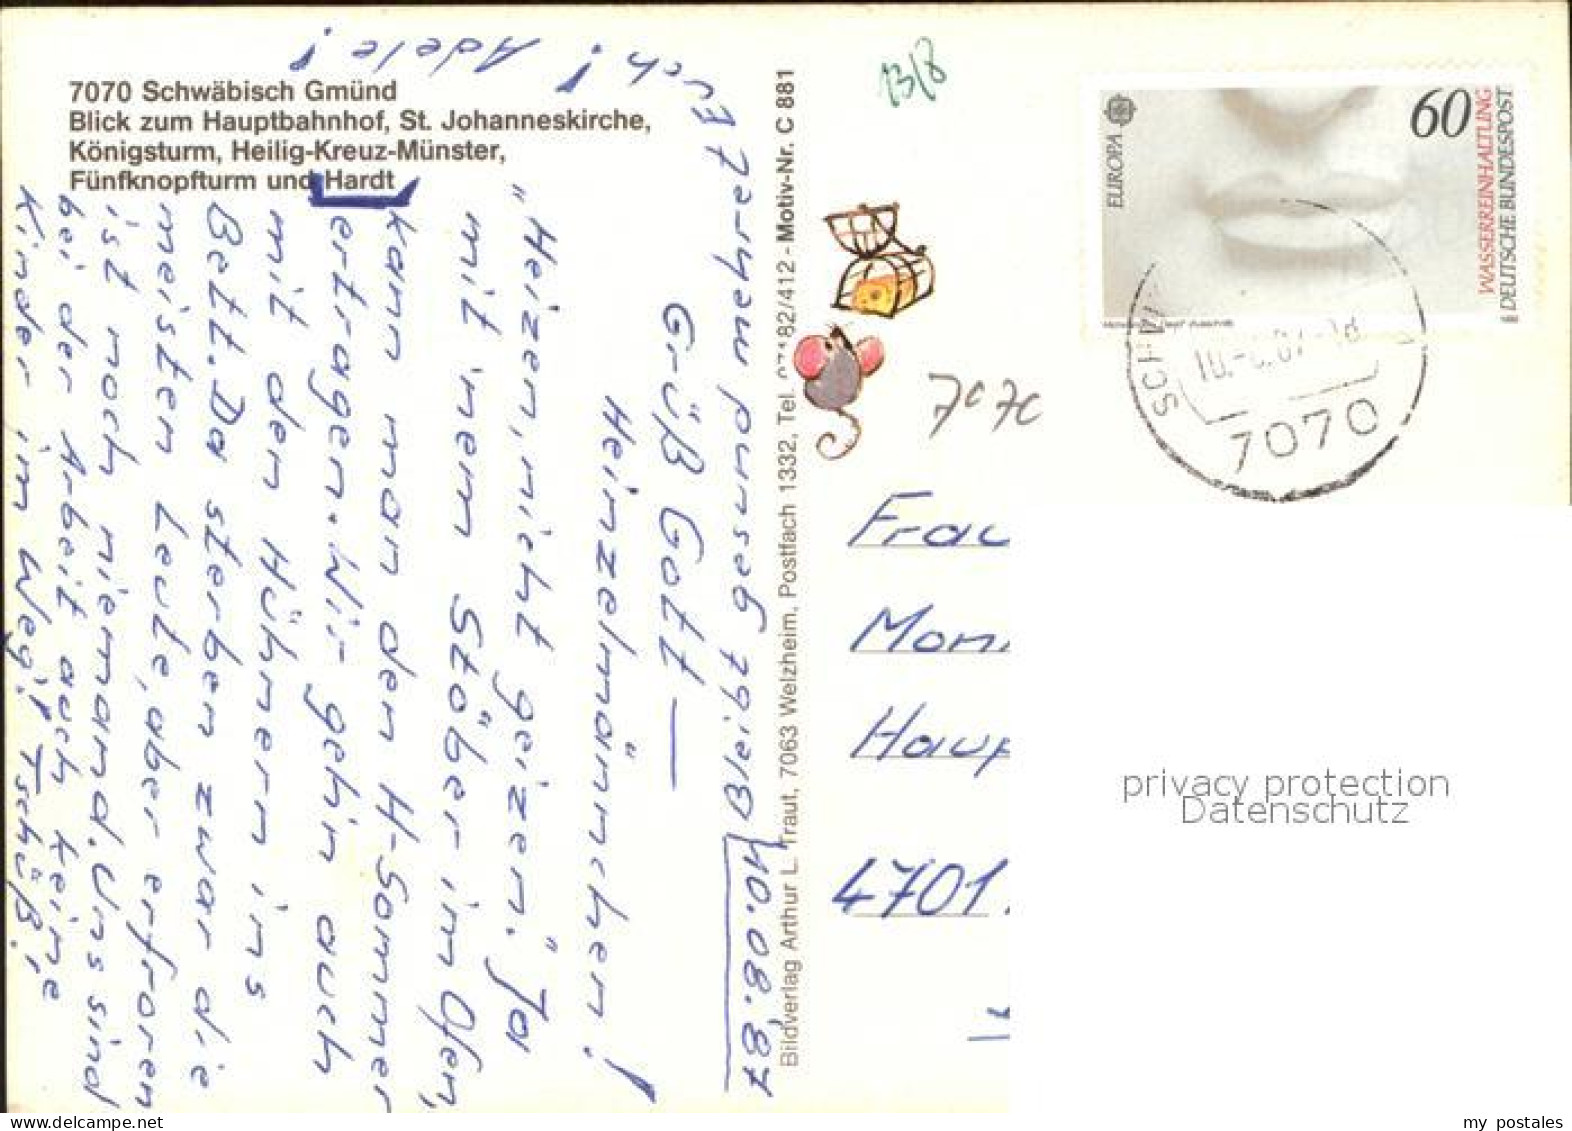 7070 Schwäbisch Gmünd
Blick zum Hauptbahnhof, St. Johanneskirche,
Königsturm, Heilig-Kreuz-Münster,
Fünfknopfturm und Hardt
10.08.87
Grüß Gott —
Heinzelmännchen!
"Heizen, nicht geizen." Ja
mit 'nem Stöber im Ofen,
kann man den H-Sommer
ertragen. Wir geh'n auch
mit den Hühnern ins
Bett. Da sterben zwar die
meisten Leute, aber erfroren
ist noch niemand. Uns sind
bei der Arbeit auch keine
Kinder im Weg! Tschüß. i
Bleibt gesund
Adele!
Bildverlag Arthur L. Traut, 7063 Welzheim, Postfach 1332, Tel. 07182/412 - Motiv-Nr. C 881
13/8
EUROPA
60
WASSERREINHALTUNG
DEUTSCHE BUNDESPOST
7070
7070
Frau
4701
privacy protection
Datenschutz
my postales
www.ansichtskartenversand.com